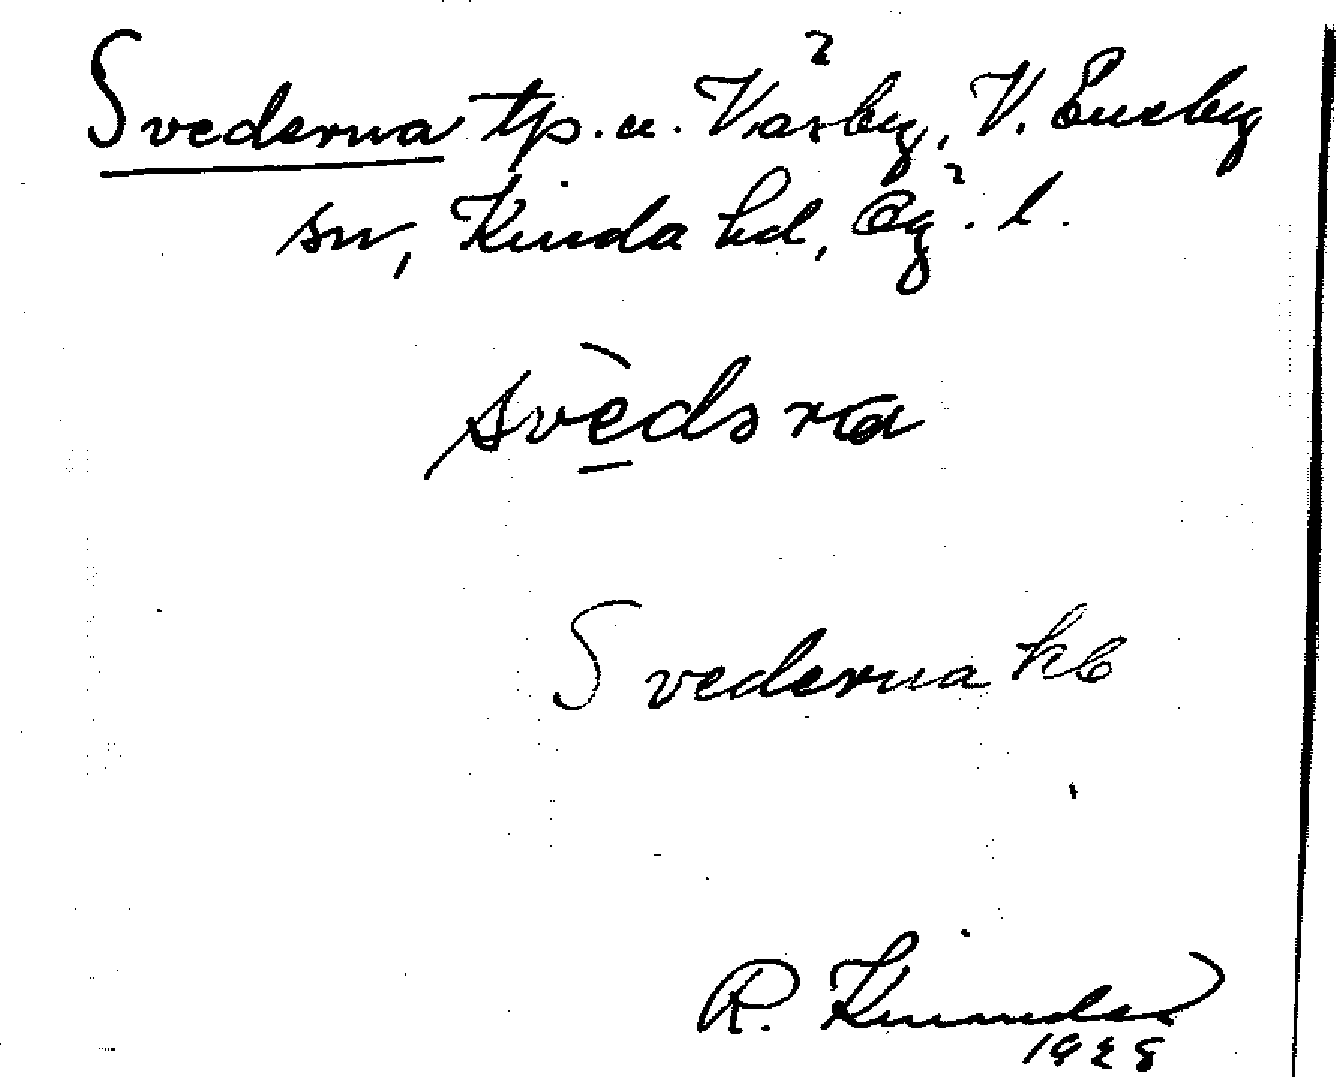 Svederna tp. u. Värby, V. Eneby
sn, Kinda hd, Ög. l.
svèdəra
Svederna kb
R.
1928